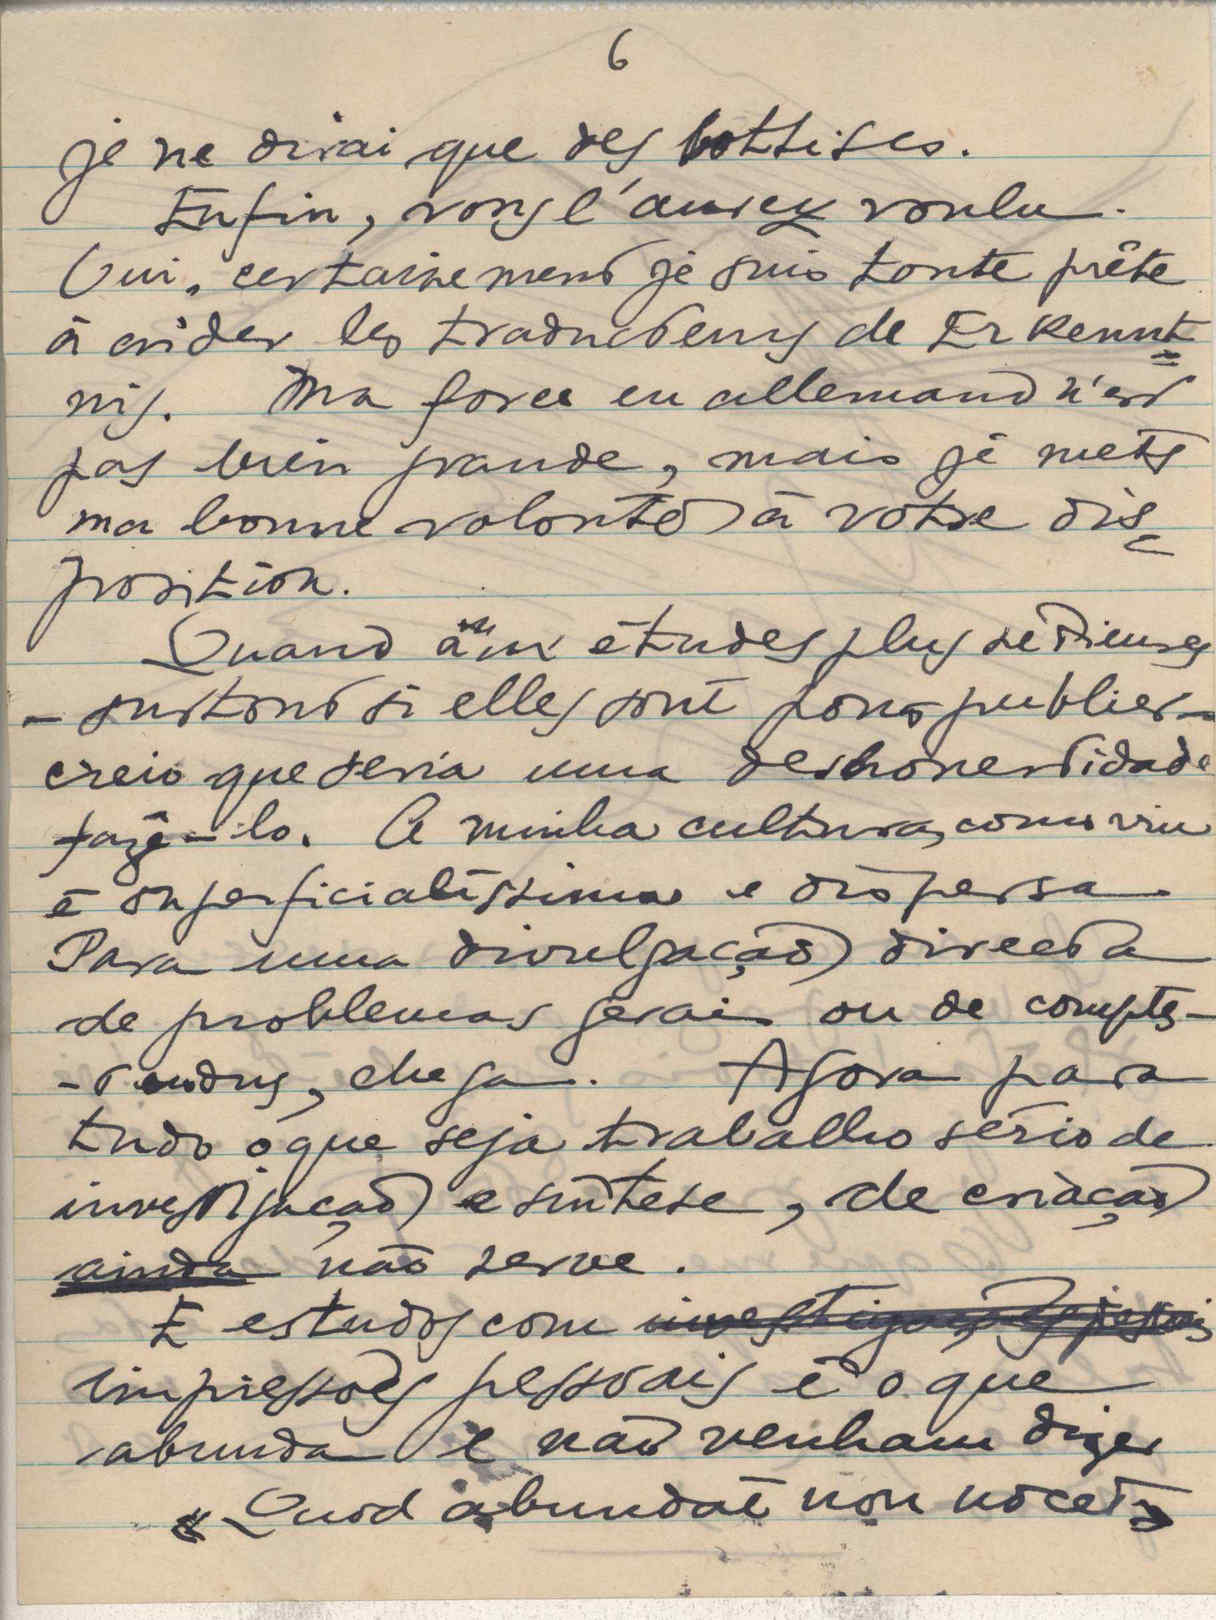 6
je ne dirai que des bottises.
Enfin, vous l'aurez voulu.
Oui, certainement je suis toute prête
à aider les traducteurs de Erkennt
nis. Ma force en allemand n'est
pas bien grande, mais je mets
ma bonne volonté à votre dis
position.
Quand aux études plus sérieuses
- surtout si elles sont pour publier -
creio que seria uma deshonestidade
fazê-lo. A minha cultura, como viu
é superficialíssima e dispersa.
Para uma divulgação directa
de problemas gerais ou de comptes-
-rendus, chega. Agora para
tudo o que seja trabalho sério de
investigação e síntese, de criação
ainda não serve.
E estudos com investigações pessoais
impressões pessoais é o que
abunda e não venham dizer
«Quod abundat non nocet»